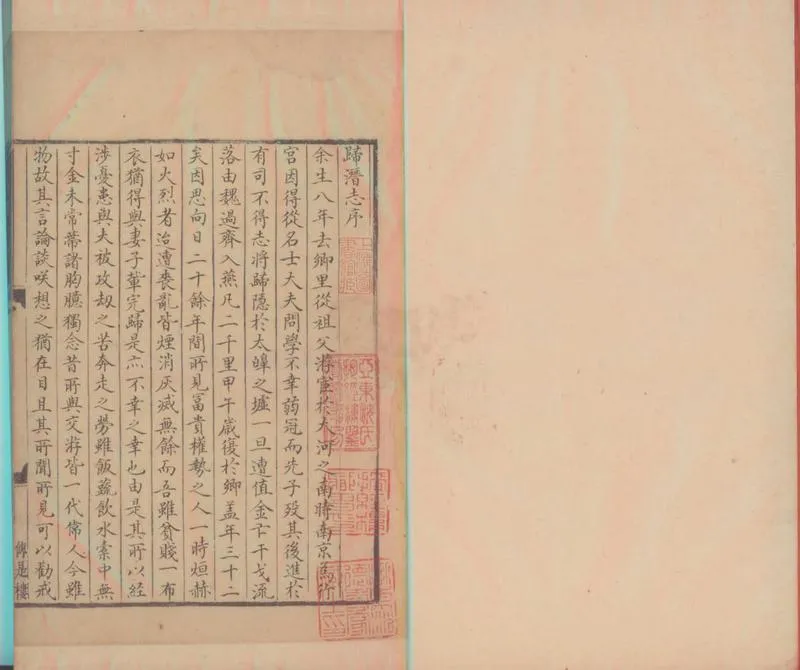 歸潛志序
余生八年去鄉里從祖父游宦於大河之南時南京為行
宮因得從名士大夫問學不幸弱冠而先子歿其後進於
有司不得志將歸隱於太皥之墟一旦遭值金亡干戈流
落由魏過齊入燕凡二千里甲午歲復於鄉蓋年三十二
矣因思向日二十餘年間所見冨貴權勢之人一時烜赫
如火烈者迨遭喪亂皆煙消灰滅無餘而吾雖貧賤一布
衣猶得與妻子輩完歸是亦不幸之幸也由是其所以經
涉憂患與夫被攻劫之苦奔走之勞雖飯蔬飲水索中無
寸金未常蔕諸胸臆獨念昔所與交游皆一代偉人今雖
物故其言論談咲想之猶在目且其所聞所見可以勸戒
傳是樓